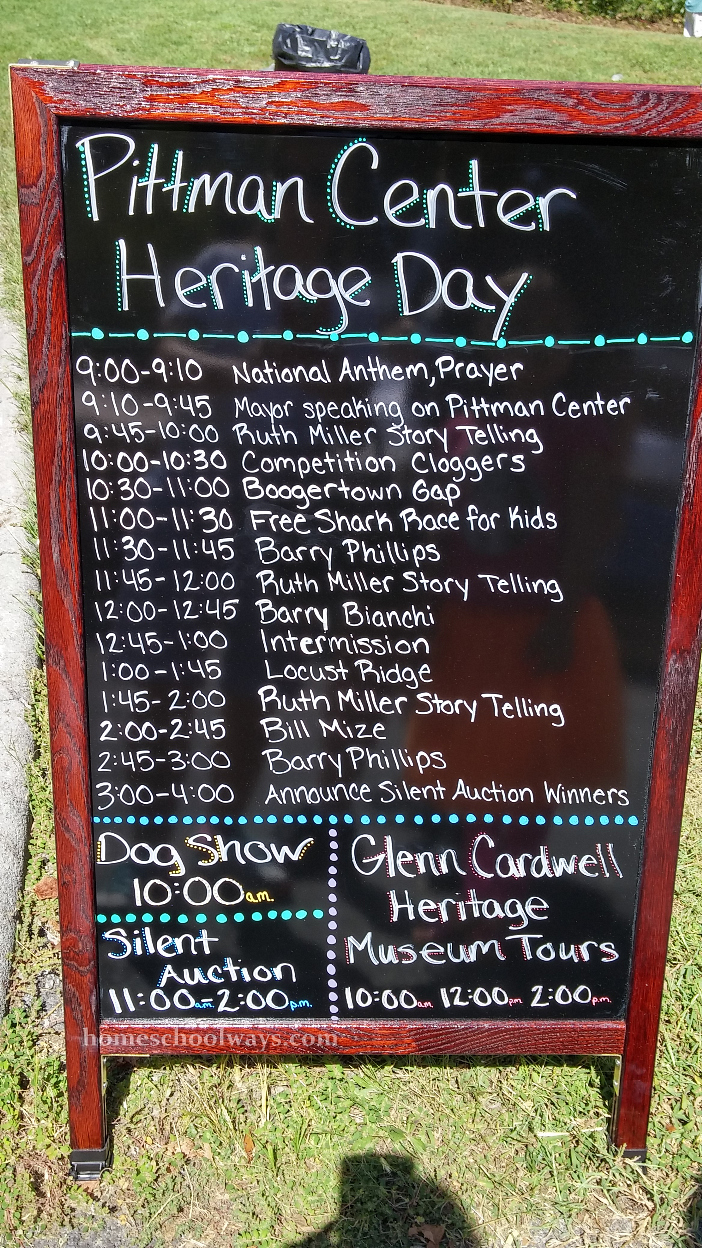 Pittman Center
Heritage Day
9:00-9:10 National Anthem, Prayer
9:10-9:45 Mayor speaking on Pittman Center
9:45-10:00 Ruth Miller Story Telling
10:00-10:30 Competition Cloggers
10:30-11:00 Boogertown Gap
11:00-11:30 Free Shark Race for Kids
11:30-11:45 Barry Phillips
11:45-12:00 Ruth Miller Story Telling
12:00-12:45 Barry Bianchi
12:45-1:00 Intermission
1:00-1:45 Locust Ridge
1:45-2:00 Ruth Miller Story Telling
2:00-2:45 Bill Mize
2:45-3:00 Barry Phillips
3:00-4:00 Announce Silent Auction Winners
Dog Show
10:00 a.m.
Silent
Auction
11:00 am-2:00 p.m.
Glenn Cardwell
Heritage
Museum Tours
10:00 am 12:00 pm 2:00 p.m.
homeschoolways.com